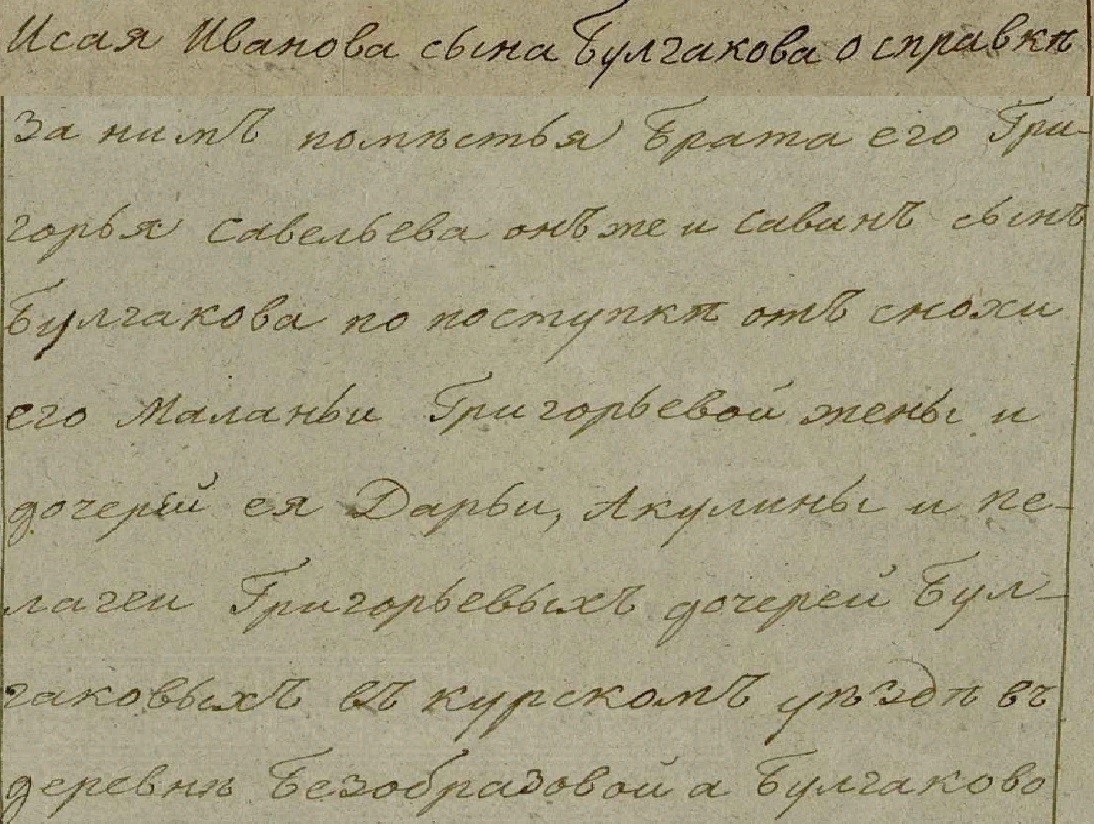 Исая Иванова сына Булгакова о справкѣ
за нимъ помѣстья брата его Гри-
горья Савельева онъ же и Саванъ сынъ
Булгакова по поступкѣ отъ снохи
его Маланьи Григорьевой жены и
дочерей ея Дарьи, Акулины и Пе-
лагеи Григорьевыхъ дочерей Бул-
гаковыхъ въ курскомъ уѣздѣ въ
деревнѣ Безобразовой а Булгаково